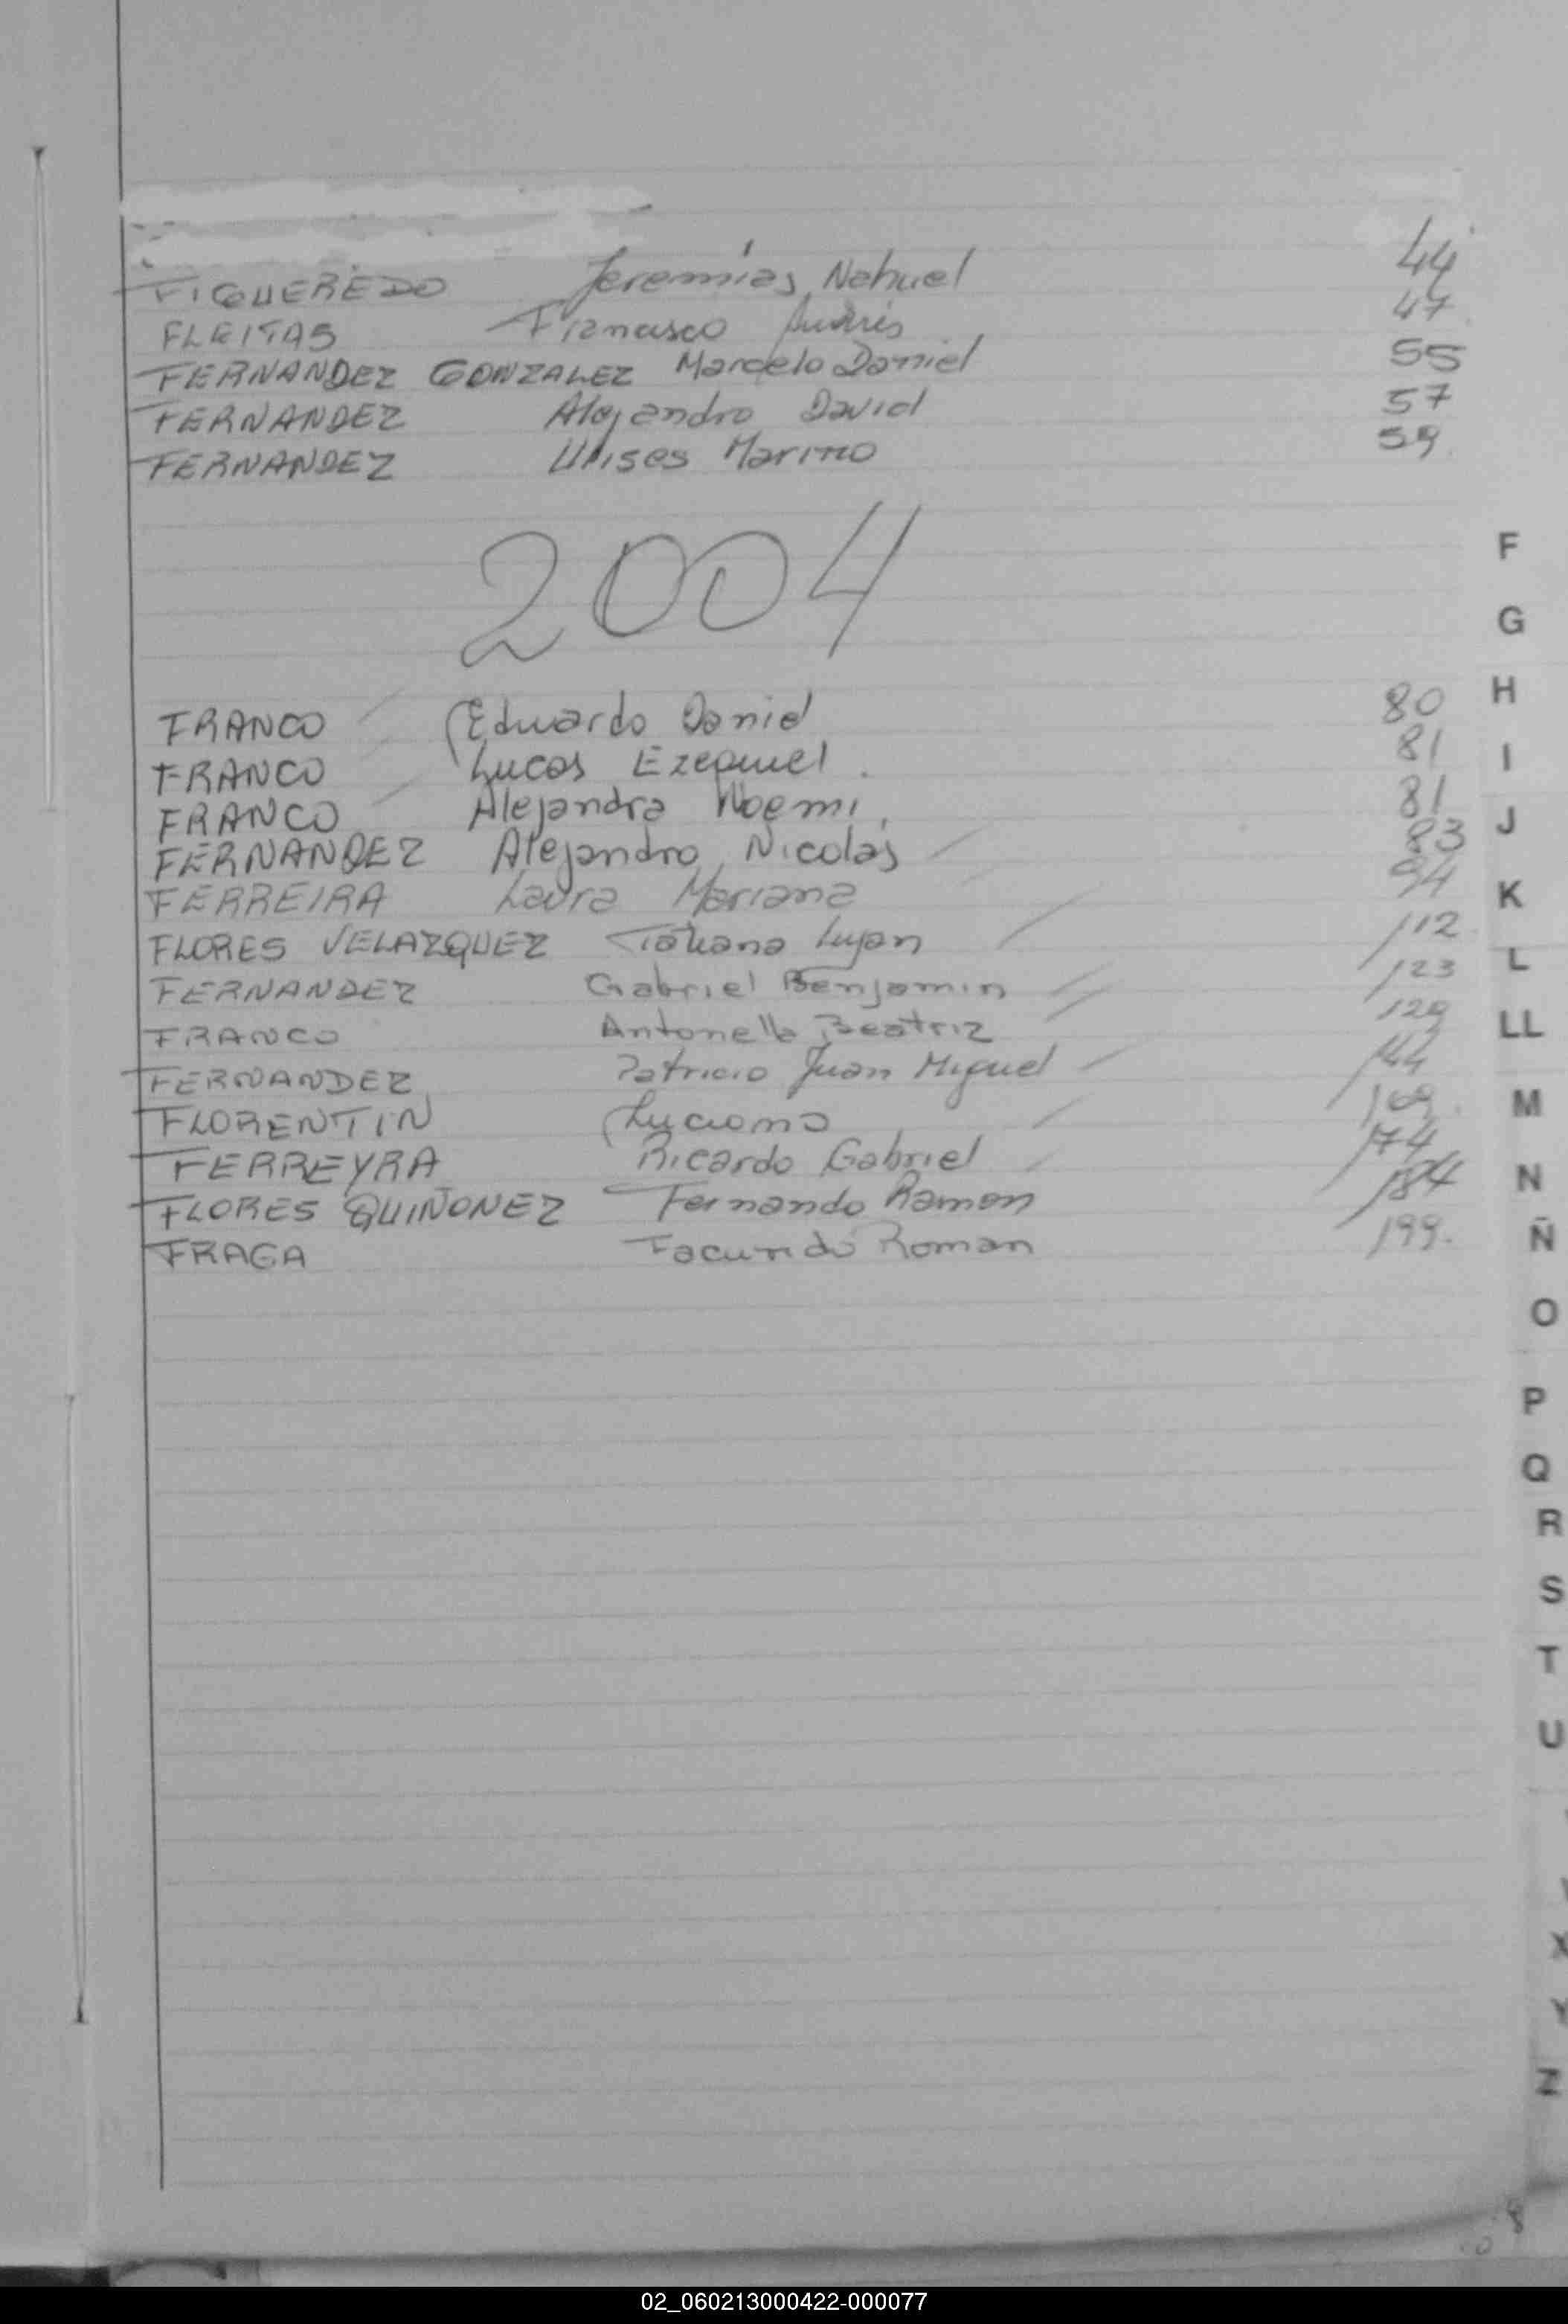 FIGUEREDO Jeremías Nahuel 44
FLEITAS Francisco Andrés 47
FERNANDEZ GONZALEZ Marcelo Daniel 55
FERNANDEZ Alejandro David 57
FERNANDEZ Ulises Marino 59
2004
FRANCO Eduardo Daniel 80
FRANCO Lucas Ezequiel 81
FRANCO Alejandra Noemi 81
FERNANDEZ Alejandro Nicolás 83
FERREIRA Laura Mariana 94
FLORES VELAZQUEZ Tatiana Lujan 112
FERNANDEZ Gabriel Benjamin 123
FRANCO Antonella Beatriz 129
FERNANDEZ Patricio Juan Miguel 144
FLORENTIN Luciano 169
FERREYRA Ricardo Gabriel 174
FLORES QUIÑONEZ Fernando Ramon 184
FRAGA Facundo Roman 199.
F
G
H
I
J
K
L
LL
M
N
Ñ
O
P
Q
R
S
T
U
X
Y
Z
02_060213000422-000077